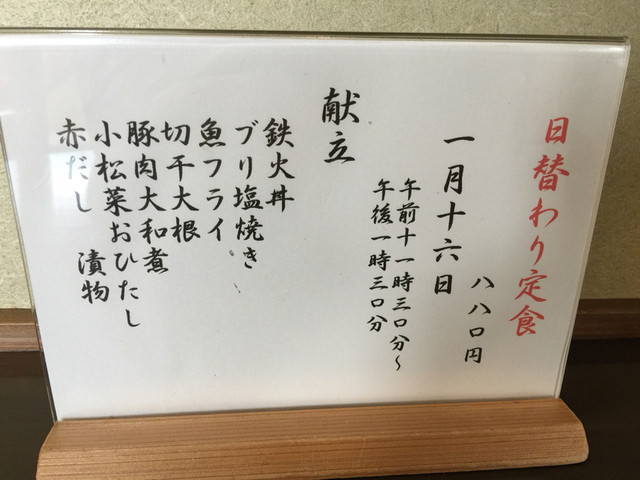 日替わり定食
八八〇円
一月十六日
午前十一時三〇分～
午後一時三〇分
献立
鉄火丼
ブリ塩焼き
魚フライ
切干大根
豚肉大和煮
小松菜おひたし
赤だし 漬物